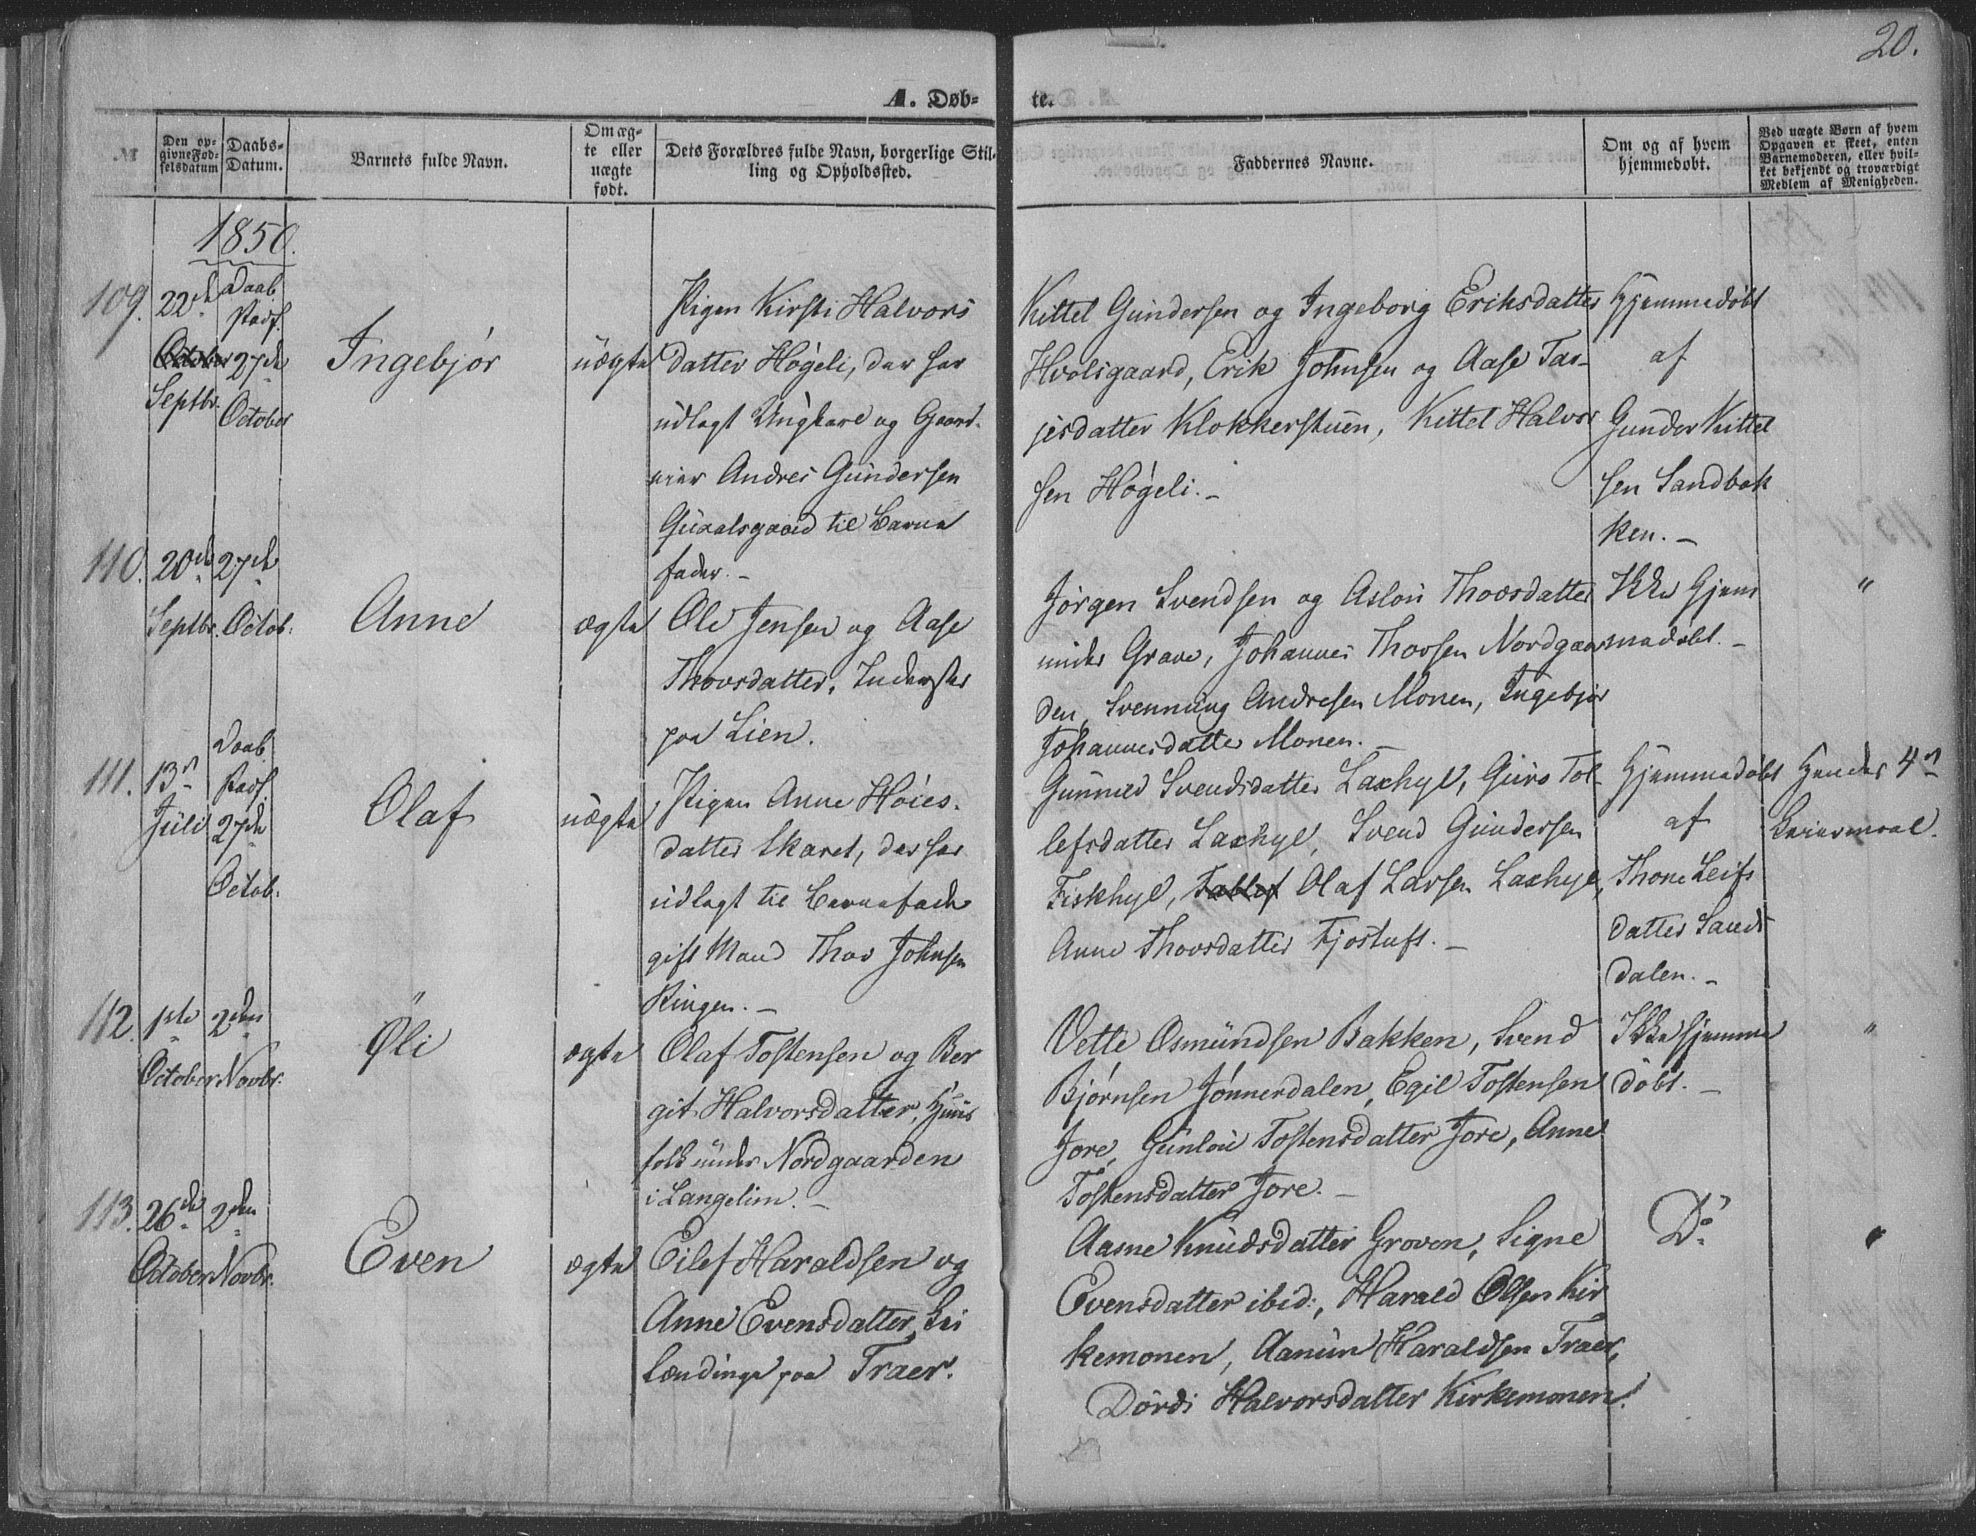 20.
A. Døb- te.
№
Den op-
givne Fød-
selsdatum
Daabs-
Datum.
Barnets fulde Navn.
Om æg-
te eller
uægte
født.
Dets Forældres fulde Navn, borgerlige Stil-
ling og Opholdssted.
Faddernes Navne.
Om og af hvem
hjemmedøbt.
Ved uægte Børn af hvem
Opgaven er skeet, enten
Barnemoderen, eller hvil-
ket bekjendt og troværdigt
Medlem af Menigheden.
1850.
109.
22de
October
Septbr.
Daab
Præs.
27de
October
Ingebjør
uægte
Pigen Kirsti Halvors
datter Høgeli, der har
udlagt Ungkarl og Gaard-
eier Andres Gundersen
til Barne
fader. –
Kittel Gundersen og Ingeborg Eriksdatter
Hvolsgaard, Erik Johnsen og Aase Tar-
jesdatter Klokkerstuen, Kittel Halvor
sen Høgeli. –
Hjemmedøbt
af
Gunder Kittel
sen Sandbak
ken. –
110.
20de
Septbr.
27de
Octob:
Anne
ægte
Ole Jensen og Aase
Thorsdatter, Inderster
paa Lien.
Jørgen Svendsen og Aslou Thorsdatter
under Grave, Johannes Thorsen Nordgaar
den, Svennung Andresen Monen, Ingebjør
Johannesdatter Monen. –
Ikke Hjem
medøbt. –
"
111.
13de
Juli
Daab
Præs.
27de
Octob:
Olaf
uægte
Pigen Anne Høies-
datter Skaret, der har
udlagt til Barnefader
gift Mand Thor Johnsen
Ringen. –
Gunnild Svendsdatter Laxhyl, Guro Tol-
lefsdatter Laxhyl, Svend Gundersen
Fiskhyl, Tollef Olaf Larsen Laxhyl,
Anne Thorsdatter Fjostuft. –
Hjemmedøbt
af
Thone Leifs
datter Sands
dalen. –
Hendes 4de
Leiermaal.
112.
1ste
October
2den
Novbr:
Øli
ægte
Olaf Tostensen og Ber
git Halvorsdatter, Huus
folk under Nordgaarden
i Langelim. –
Vetle Osmundsen Bakken, Svend
Bjørnsen Jønnerdalen, Egil Tostensen
Jore, Gunlou Tostensdatter Jore, Anne
Tostensdatter Jore. –
Ikke hjemme
døbt. –
"
113.
26de
October
2den
Novbr.
Even
ægte
Eilef Haraldsen og
Anne Evensdatter, Lei
lændinge paa Traer.
Aasne Knudsdatter Groven, Signe
Evensdatter ibid:, Harald Olsen Kir
kemonen, Aanun Haraldsen Traer,
Dordi Halvorsdatter Kirkemonen.
Do
"